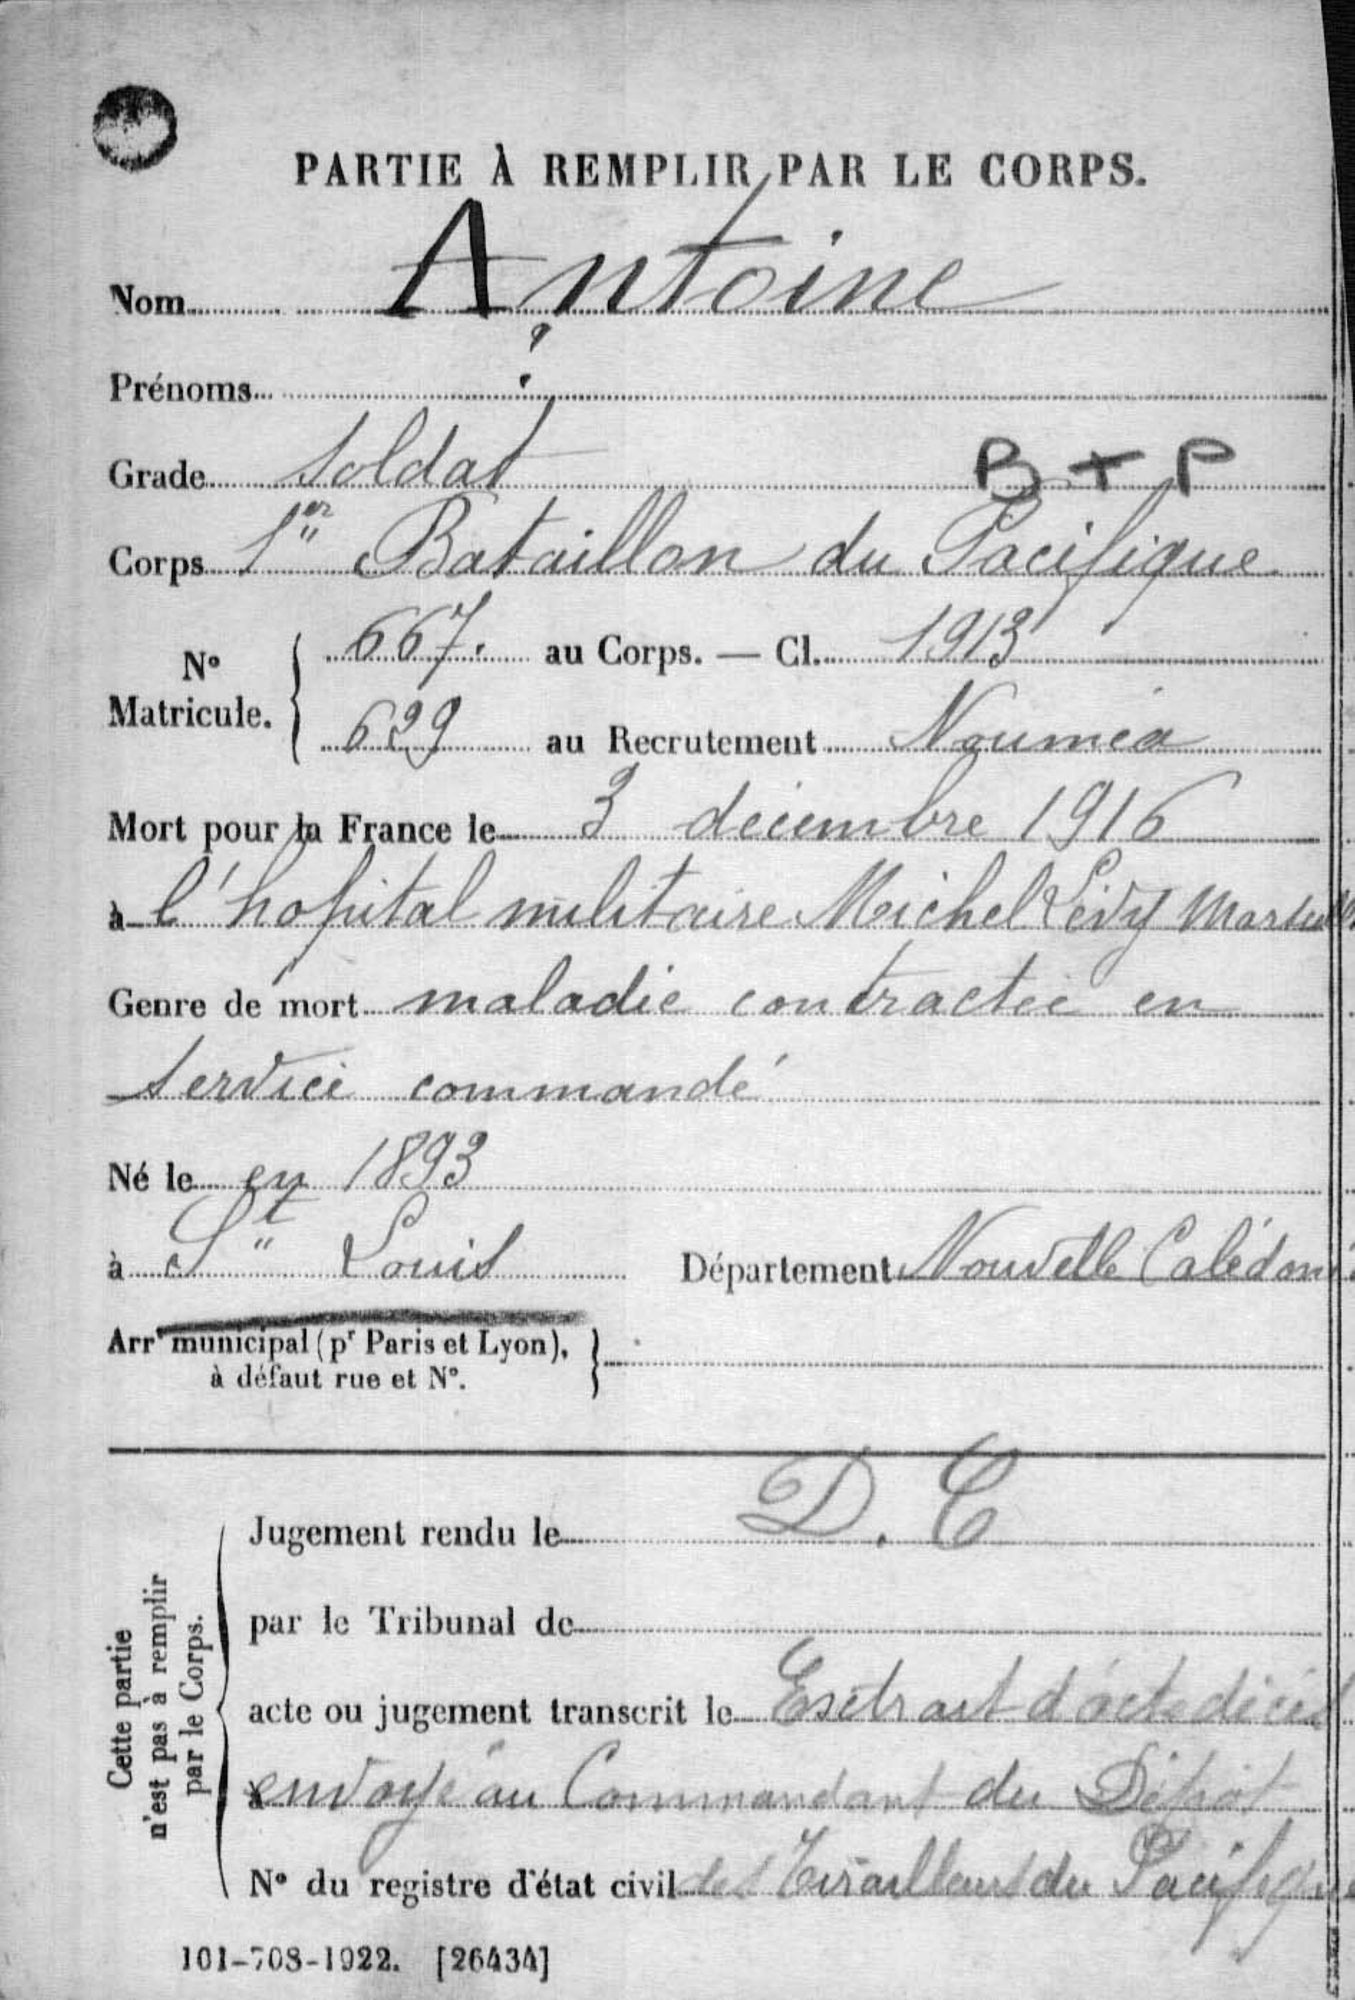 PARTIE À REMPLIR PAR LE CORPS.
Nom Antoine
Prénoms ?
Grade Soldat B + P
Corps 1er Bataillon du Pacifique
N° Matricule. { 667. au Corps. — Cl. 1913
629 au Recrutement Nouméa
Mort pour la France le 3 décembre 1916
à l'hopital militaire Michel Lévy Marseille
Genre de mort maladie contractée en
service commandé
Né le en 1893
à St Louis Département Nouvelle Calédonie
Arrt municipal (pr Paris et Lyon),
à défaut rue et N°.
D. C
Jugement rendu le
par le Tribunal de
Cette partie
n'est pas à remplir
par le Corps.
acte ou jugement transcrit le Extrait d'acte décès
à envoyé au Commandant du Dépôt
N° du registre d'état civil des Tirailleurs du Pacifique
101-708-1922. [26434]